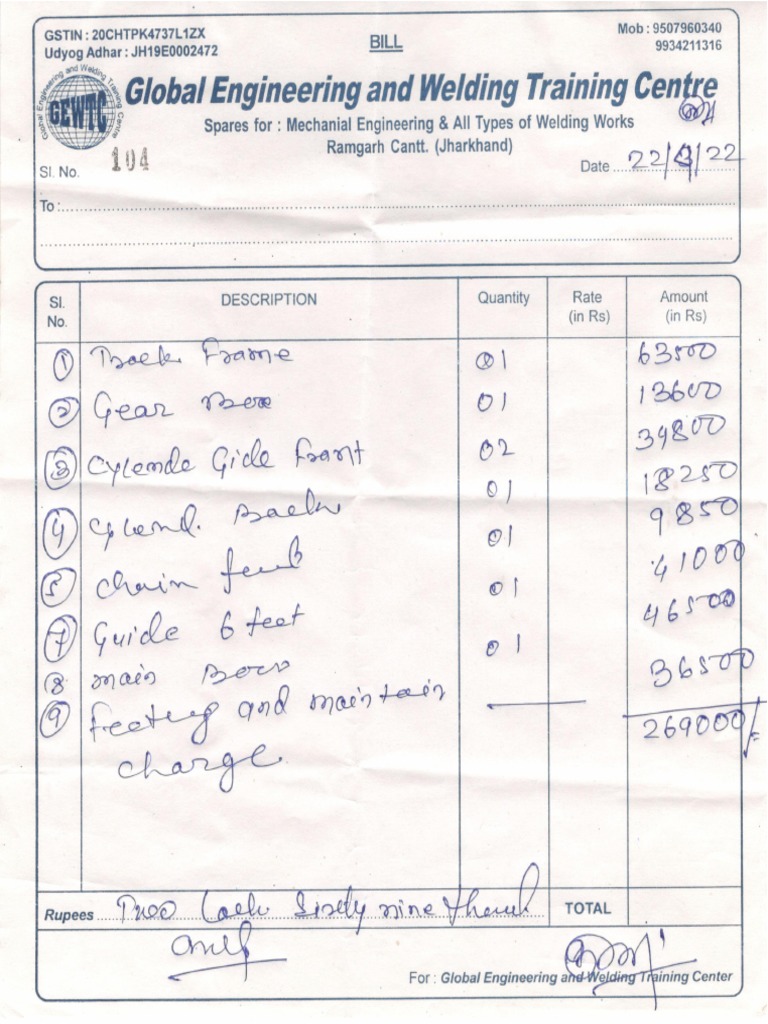 GSTIN : 20CHTPK4737L1ZX
Udyog Adhar : JH19E0002472
BILL
Mob : 9507960340
9934211316
Global Engineering and Welding Training Centre
GEWTC
Global Engineering and Welding Training Centre
Spares for : Mechanial Engineering & All Types of Welding Works
Ramgarh Cantt. (Jharkhand)
Sl. No. 104
Date 22/9/22
To :
Sl. No. DESCRIPTION Quantity Rate (in Rs) Amount (in Rs)
1 Back Frame 01 63500
2 Gear Box 01 13600
3 Cylende Gide Frant 02 39800
4 Cylend. Back 01 18250
5 chain 01 9850
7 Guide 6 feet 01 41000
8 main 01 46500
9 feeting and maintain 36500
charge
269000/=
Rupees Two Lack Sixty nine TOTAL
For : Global Engineering and Welding Training Center